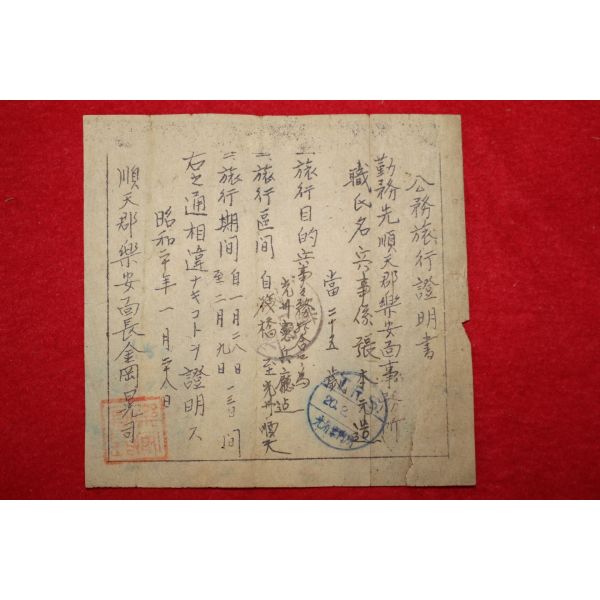 公務旅行證明書
勤務先順天郡樂安面事務所
職氏名 兵事係 張本元造
當 二十五 歲
一、旅行目的 兵事事務打合ノ為
光州憲兵廳迄
一、旅行區间 自 筏橋 至 光州 順天
一、旅行期间 自一月二八日 至二月九日 一三日 间
右之通相違ナキコトヲ證明ス
昭和二十年一月二十八日
順天郡樂安面長金岡晃司
20.2.